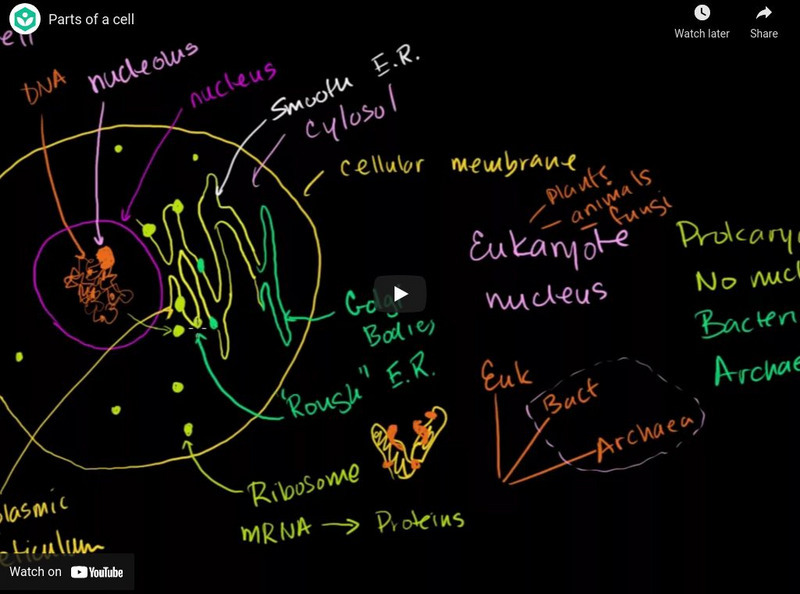 Parts of a cell
Watch later
Share
ell
DNA
nucleolus
nucleus
Smooth E.R.
cytosol
cellular membrane
plants
animals
fungi
Eukaryote
nucleus
Prokary
No nucl
Bacteri
Archae
Golgi
Bodies
"Rough" E.R.
Euk
Bact
Archaea
Ribosome
mRNA → Proteins
plasmic
eticulum
Watch on YouTube